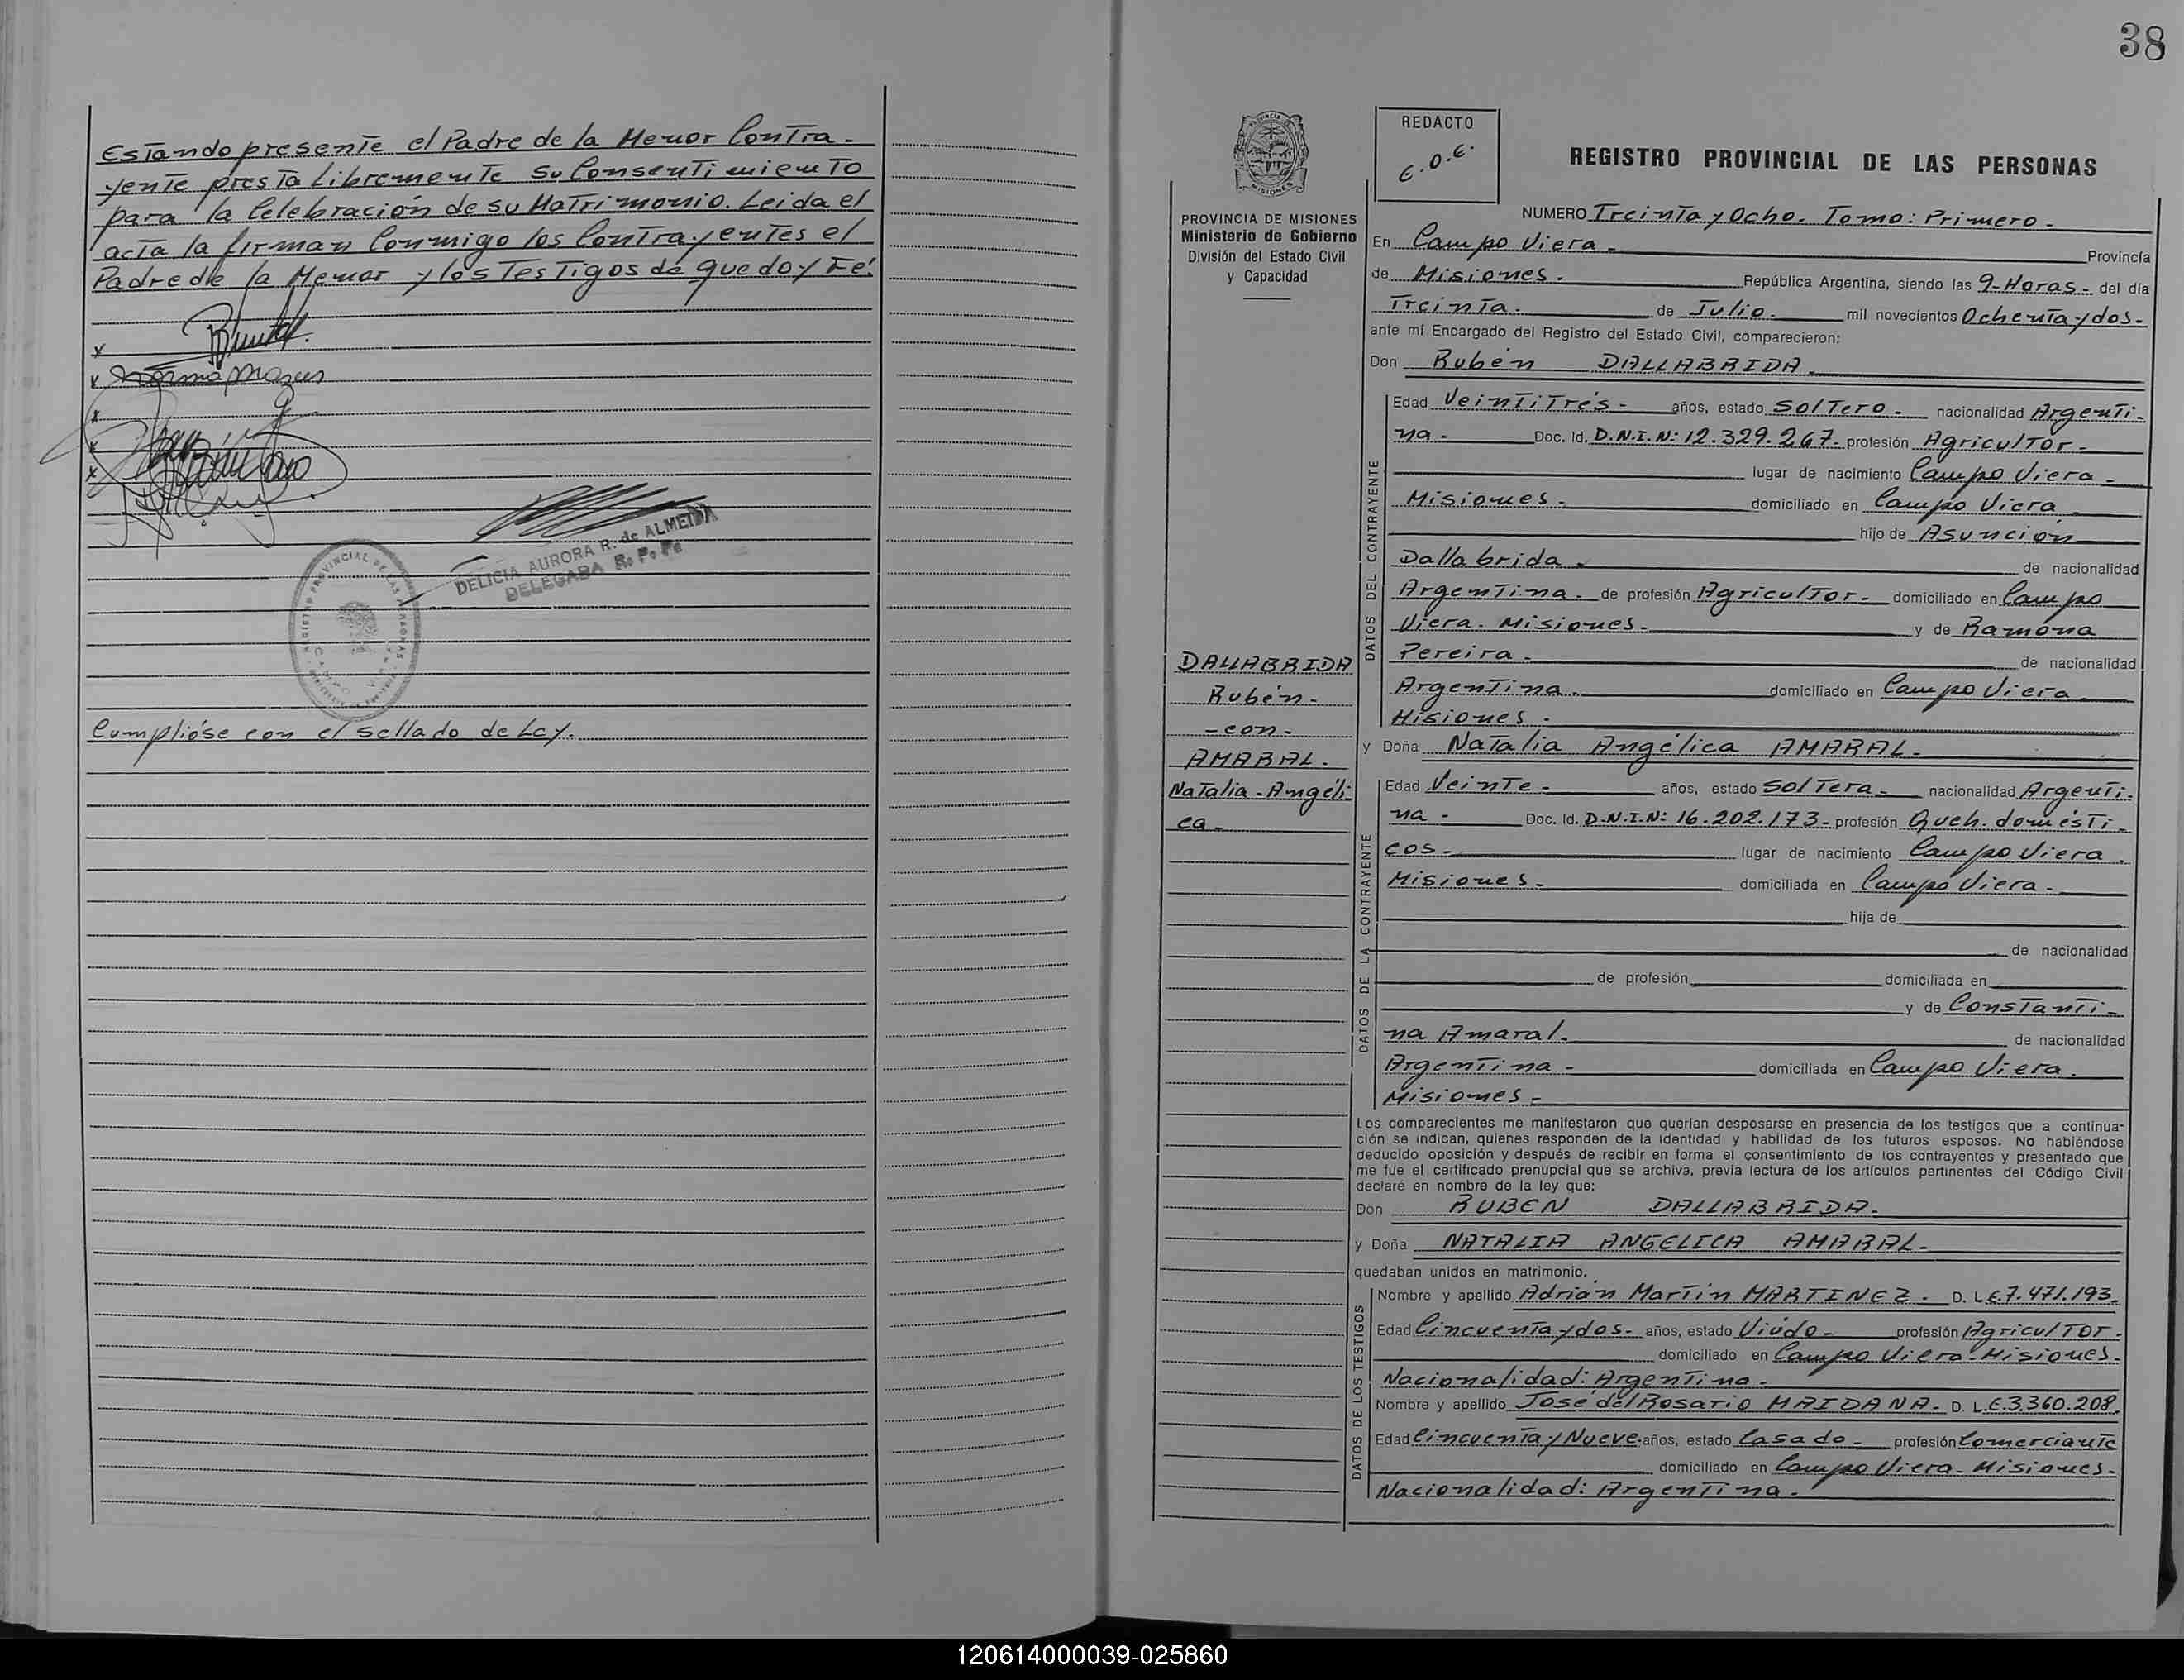 Estando presente el Padre de la Menor Contra-
yente presta Libremente su Consentimiento
para la Celebración de su Matrimonio. Leida el
acta la firman Conmigo los Contrayentes el
Padre de la Menor y los Testigos de que doy Fé.
x
x Norma
x
x
x
DELICIA AURORA R. de ALMEIDA
DELEGADA R. P. P.
Cumplióse con el sellado de Ley.
38
PROVINCIA DE MISIONES
Ministerio de Gobierno
División del Estado Civil
y Capacidad
REDACTO
E.O.E.
REGISTRO PROVINCIAL DE LAS PERSONAS
NUMERO Treinta y Ocho. Tomo: Primero-
En Campo Viera- Provincia
de Misiones. República Argentina, siendo las 9-Horas- del día
Treinta. de Julio. mil novecientos Ochenta y dos-
ante mí Encargado del Registro del Estado Civil, comparecieron:
Don Rubén DALLABRIDA.
DATOS DEL CONTRAYENTE
Edad Veintitrés- años, estado Soltero- nacionalidad Argenti-
na- Doc. Id. D.N.I.N: 12.329.267- profesión Agricultor-
lugar de nacimiento Campo Viera-
Misiones- domiciliado en Campo Viera
hijo de Asunción
Dallabrida. de nacionalidad
Argentina. de profesión Agricultor- domiciliado en Campo
Viera. Misiones- y de Ramona
Pereira- de nacionalidad
Argentina. domiciliado en Campo Viera
Misiones-
DALLABRIDA
Rubén-
-con-
AMARAL.
Natalia-Angéli-
ca-
y Doña Natalia Angélica AMARAL-
DATOS DE LA CONTRAYENTE
Edad Veinte- años, estado Soltera- nacionalidad Argenti-
na- Doc. Id. D.N.I.N: 16.202.173- profesión Queh. domésti-
cos- lugar de nacimiento Campo Viera.
Misiones- domiciliada en Campo Viera-
hija de
de nacionalidad
de profesión domiciliada en
y de Constanti-
na Amaral. de nacionalidad
Argentina- domiciliada en Campo Viera.
Misiones-
Los comparecientes me manifestaron que querían desposarse en presencia de los testigos que a continua-
ción se indican, quienes responden de la identidad y habilidad de los futuros esposos. No habiéndose
deducido oposición y después de recibir en forma el consentimiento de los contrayentes y presentado que
me fue el certificado prenupcial que se archiva, previa lectura de los artículos pertinentes del Código Civil
declaré en nombre de la ley que:
Don RUBEN DALLABRIDA-
y Doña NATALIA ANGELICA AMARAL-
quedaban unidos en matrimonio.
DATOS DE LOS TESTIGOS
Nombre y apellido Adrián Martín MARTINEZ. D. L.E.7.471.193-
Edad Cincuenta y dos- años, estado Viúdo- profesión Agricultor-
domiciliado en Campo Viera-Misiones-
Nacionalidad: Argentina-
Nombre y apellido José del Rosario MAIDANA- D. L.E.3.360.208
Edad Cincuenta y Nueve- años, estado Casado- profesión Comerciante
domiciliado en Campo Viera-Misiones-
Nacionalidad: Argentina.
120614000039-025860